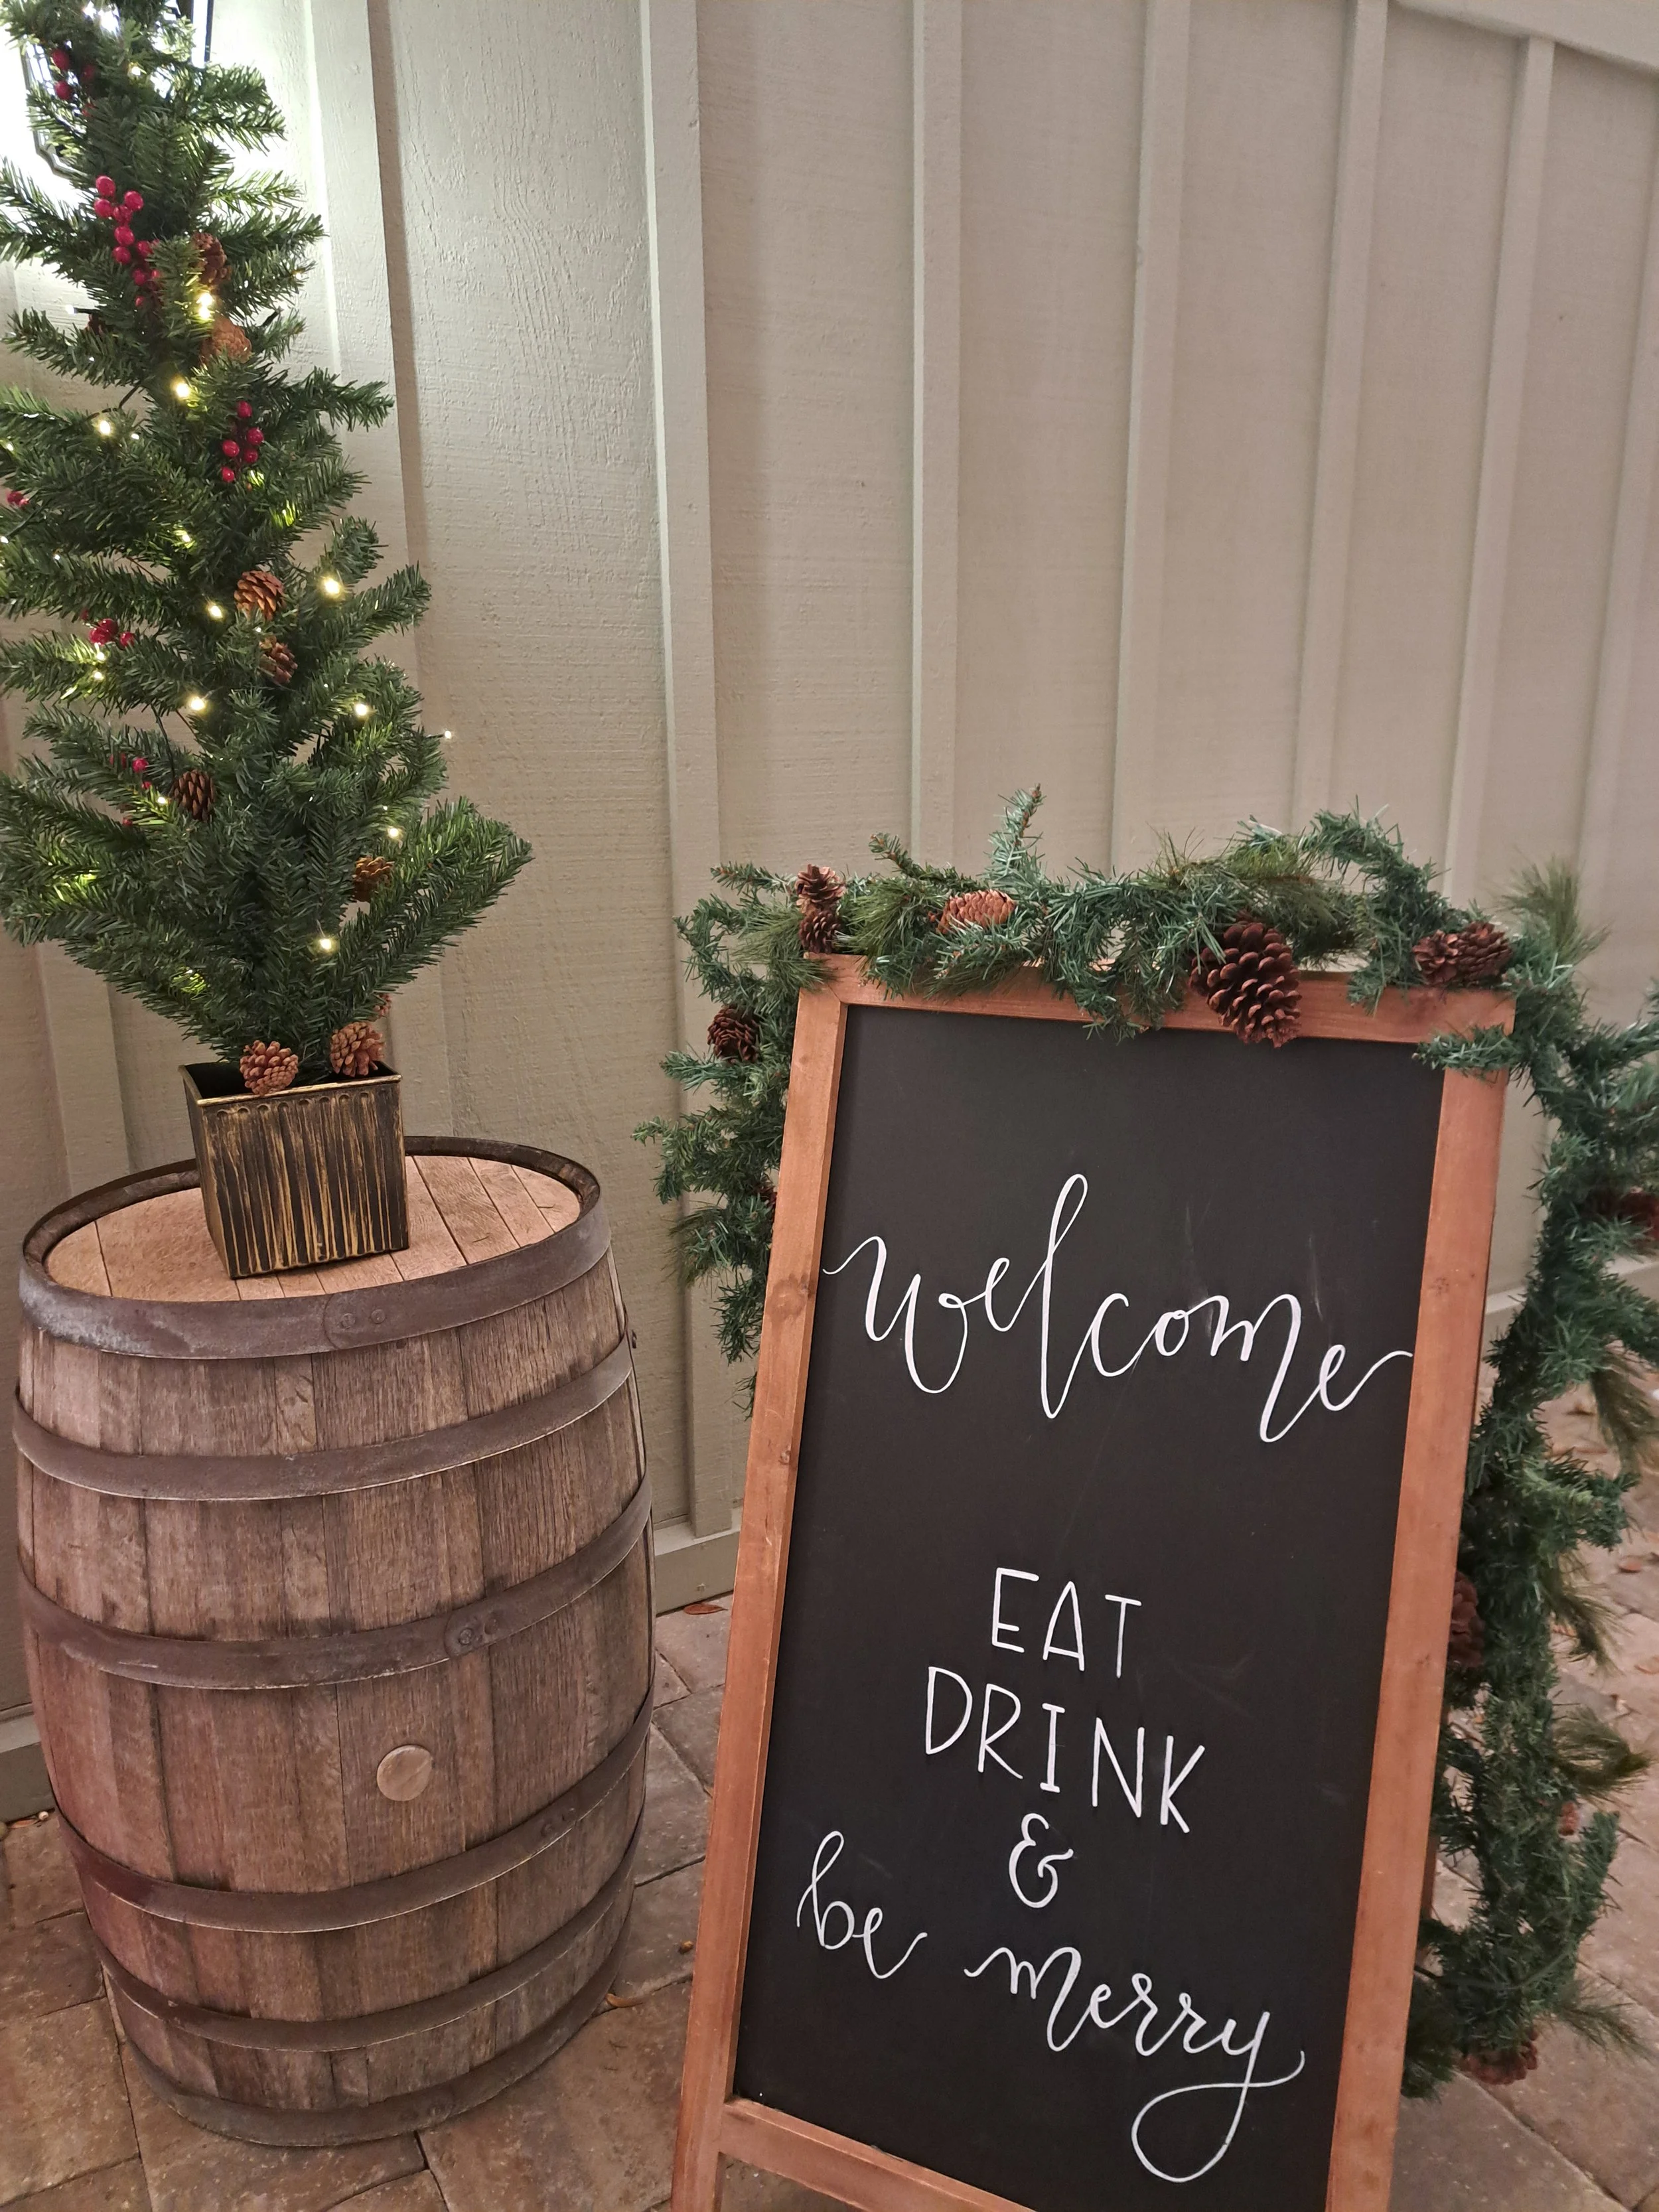 welcome
EAT
DRINK
&
be merry